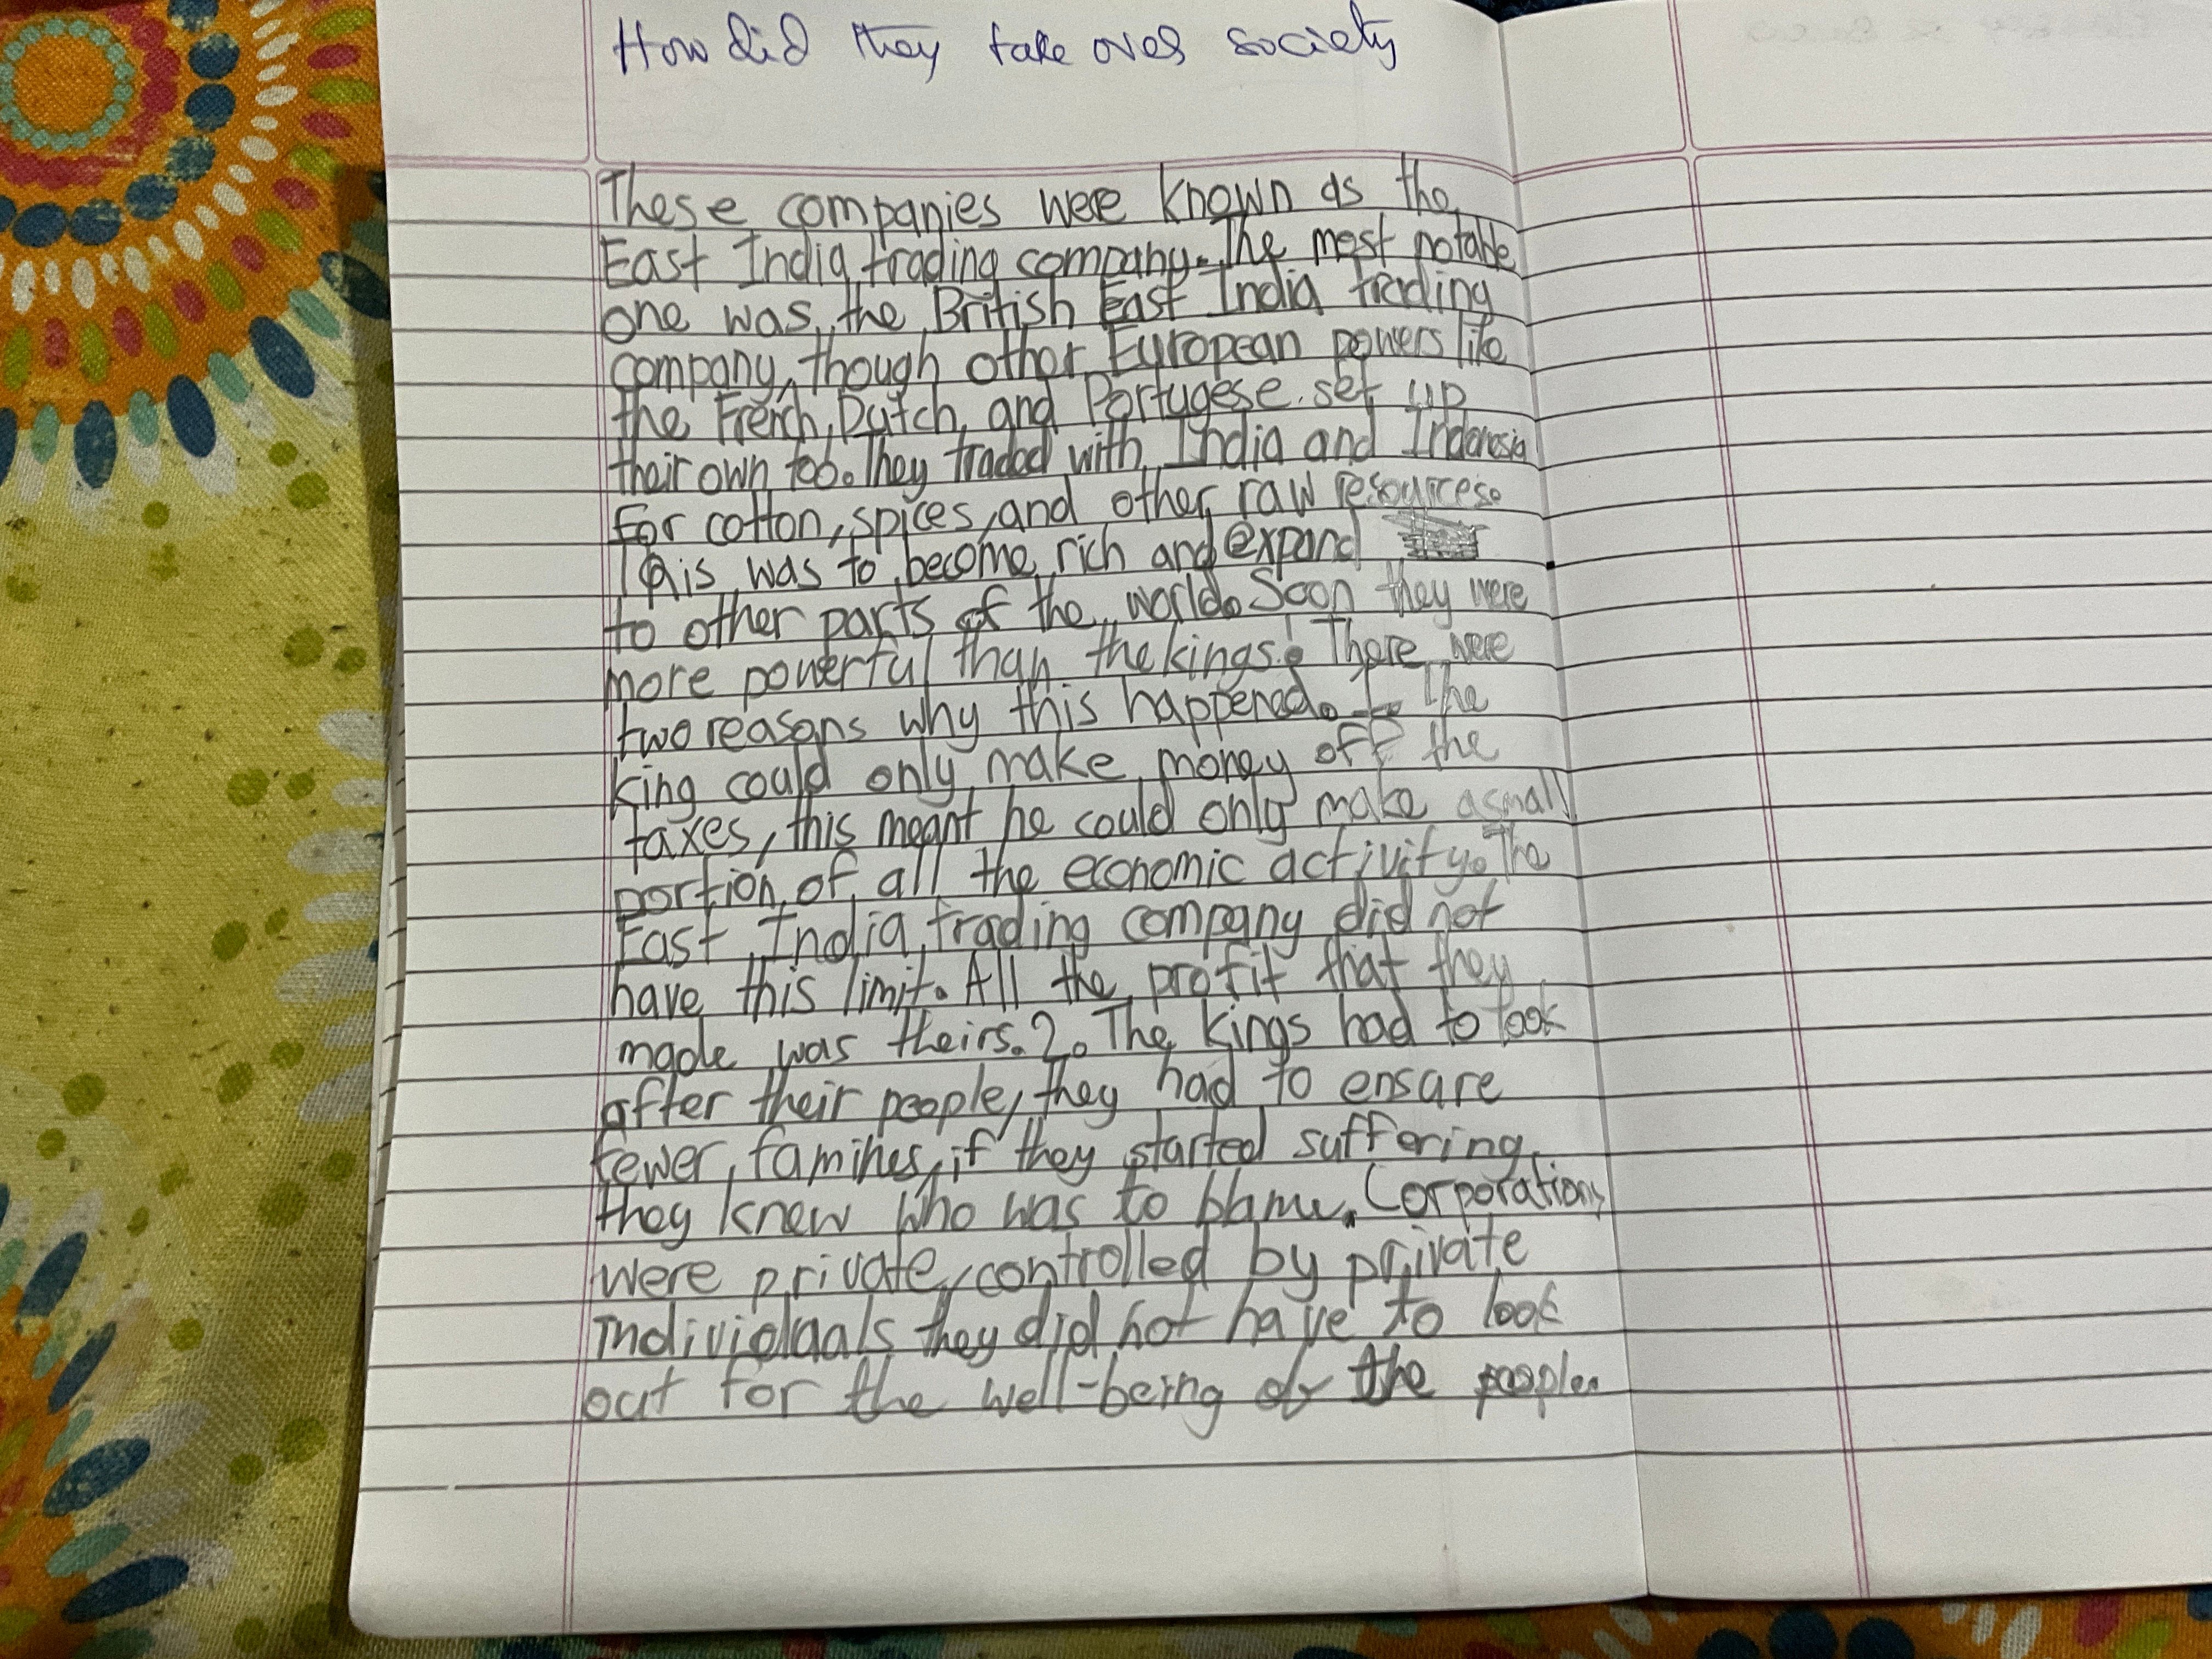 How did they take over society
These companies were known as the
East India trading company. The most notable
one was the British East India trading
company, though other European powers like
the French, Dutch, and Portugese set up
their own too. They traded with India and Indonesia
for cotton, spices, and other raw resources.
This was to become rich and expand
to other parts of the world. Soon they were
more powerful than the kings! There were
two reasons why this happened. The
king could only make money off the
taxes, this meant he could only make a small
portion of all the economic activity. The
East India trading company did not
have this limit. All the profit that they
made was theirs. 2. The kings had to look
after their people, they had to ensure
fewer famines, if they started suffering
they knew who was to blame. Corporations
were private, controlled by private
individuals they did not have to look
out for the well-being of the people.